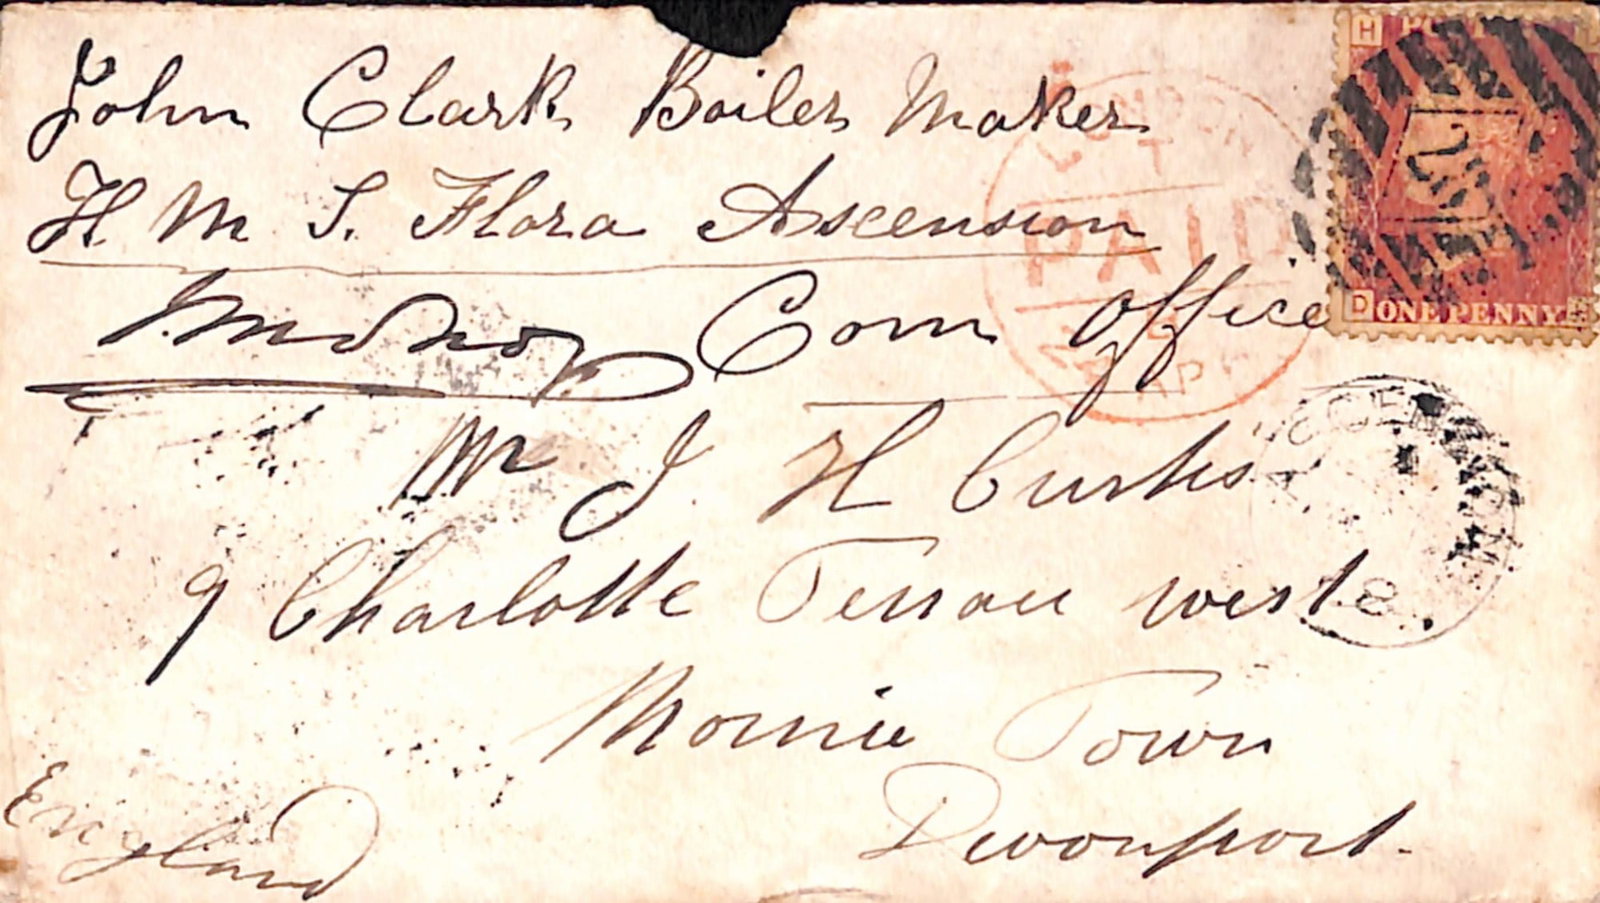 John Clark Boiler Maker
H. M. S. Flora Ascension
Com Office
Mr J H Curtis
9 Charlotte Terrace west
Morice Town
Devonport.
England
LONDON
PAID
AP
ASCENSION
H
D ONE PENNY